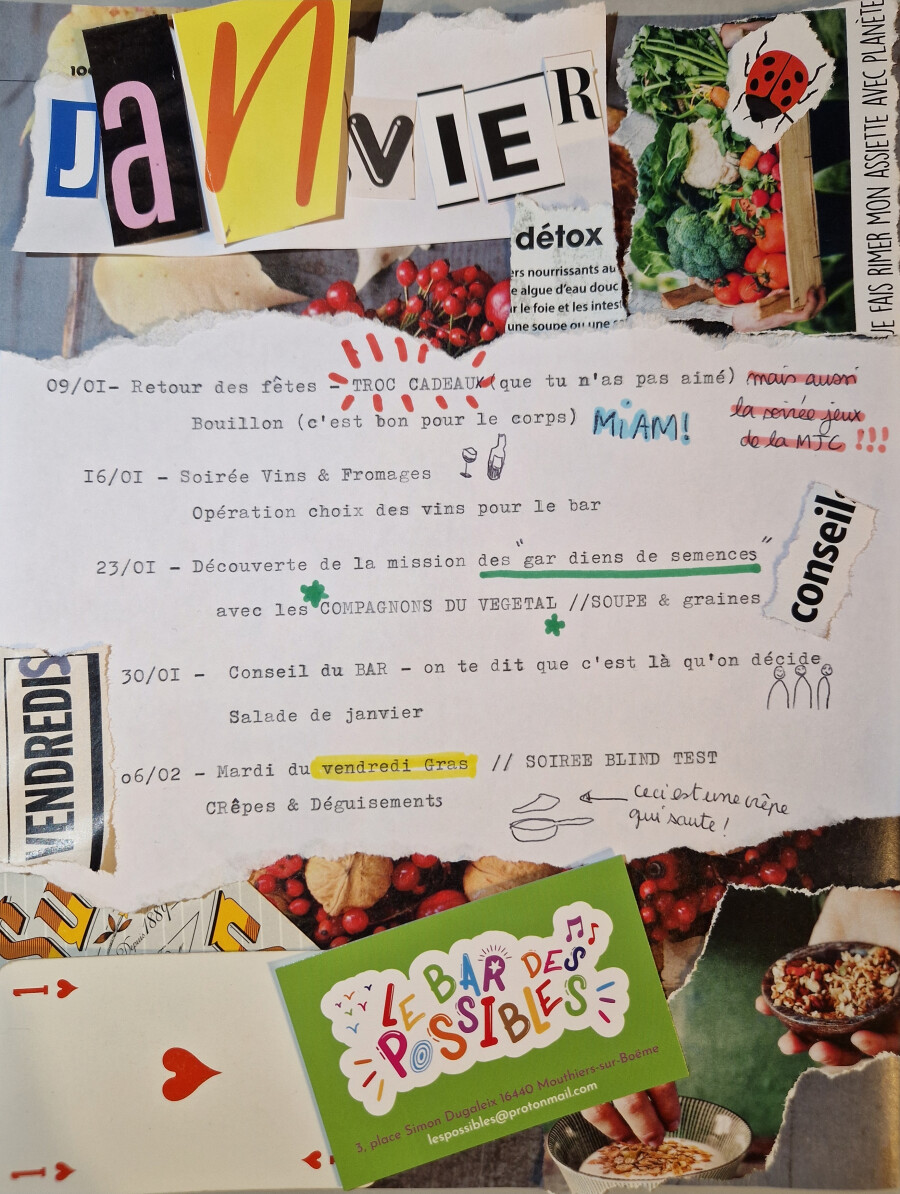 100
JaNVIER
JE FAIS RIMER MON ASSIETTE AVEC PLANÈTE
détox
ers nourrissants au
e algue d'eau douc
r le foie et les intes
une soupe ou une
09/01- Retour des fêtes - TROC CADEAUX (que tu n'as pas aimé) mais aussi
la soirée jeux
de la MJC !!!
Bouillon (c'est bon pour le corps) MiAM!
16/01 - Soirée Vins & Fromages
Opération choix des vins pour le bar
conseil
23/01 - Découverte de la mission des "gar diens de semences"
avec les COMPAGNONS DU VEGETAL //SOUPE & graines
VENDREDIS
30/01 - Conseil du BAR - on te dit que c'est là qu'on décide
Salade de janvier
o6/02 - Mardi du vendredi Gras // SOIREE BLIND TEST
CRêpes & Déguisements
ceci est une crêpe
qui saute !
Depuis 1889
1
LE BAR DES
POSSIBLES
3, place Simon Dugaleix 16440 Mouthiers-sur-Boëme
lespossibles@protonmail.com
1